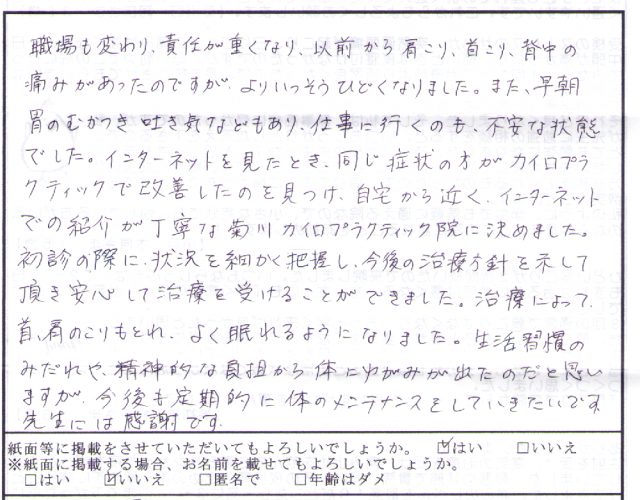 職場も変わり、責任が重くなり、以前から肩こり、首こり、背中の
痛みがあったのですが、よりいっそうひどくなりました。また、早朝
胃のむかつき吐き気などもあり、仕事に行くのも、不安な状態
でした。インターネットを見たとき、同じ症状の方がカイロプラ
クティックで改善したのを見つけ、自宅から近く、インターネット
での紹介が丁寧な菊川カイロプラクティック院に決めました。
初診の際に、状況を細かく把握し、今後の治療方針を示して
頂き安心して治療を受けることができました。治療によって、
首、肩のこりもとれ、よく眠れるようになりました。生活習慣の
みだれや、精神的な負担から体にゆがみが出たのだと思い
ますが、今後も定期的に体のメンテナンスをしていきたいです。
先生には感謝です。
紙面等に掲載をさせていただいてもよろしいでしょうか。 ☑はい □いいえ
※紙面に掲載する場合、お名前を載せてもよろしいでしょうか。
□はい ☑いいえ □匿名で □年齢はダメ